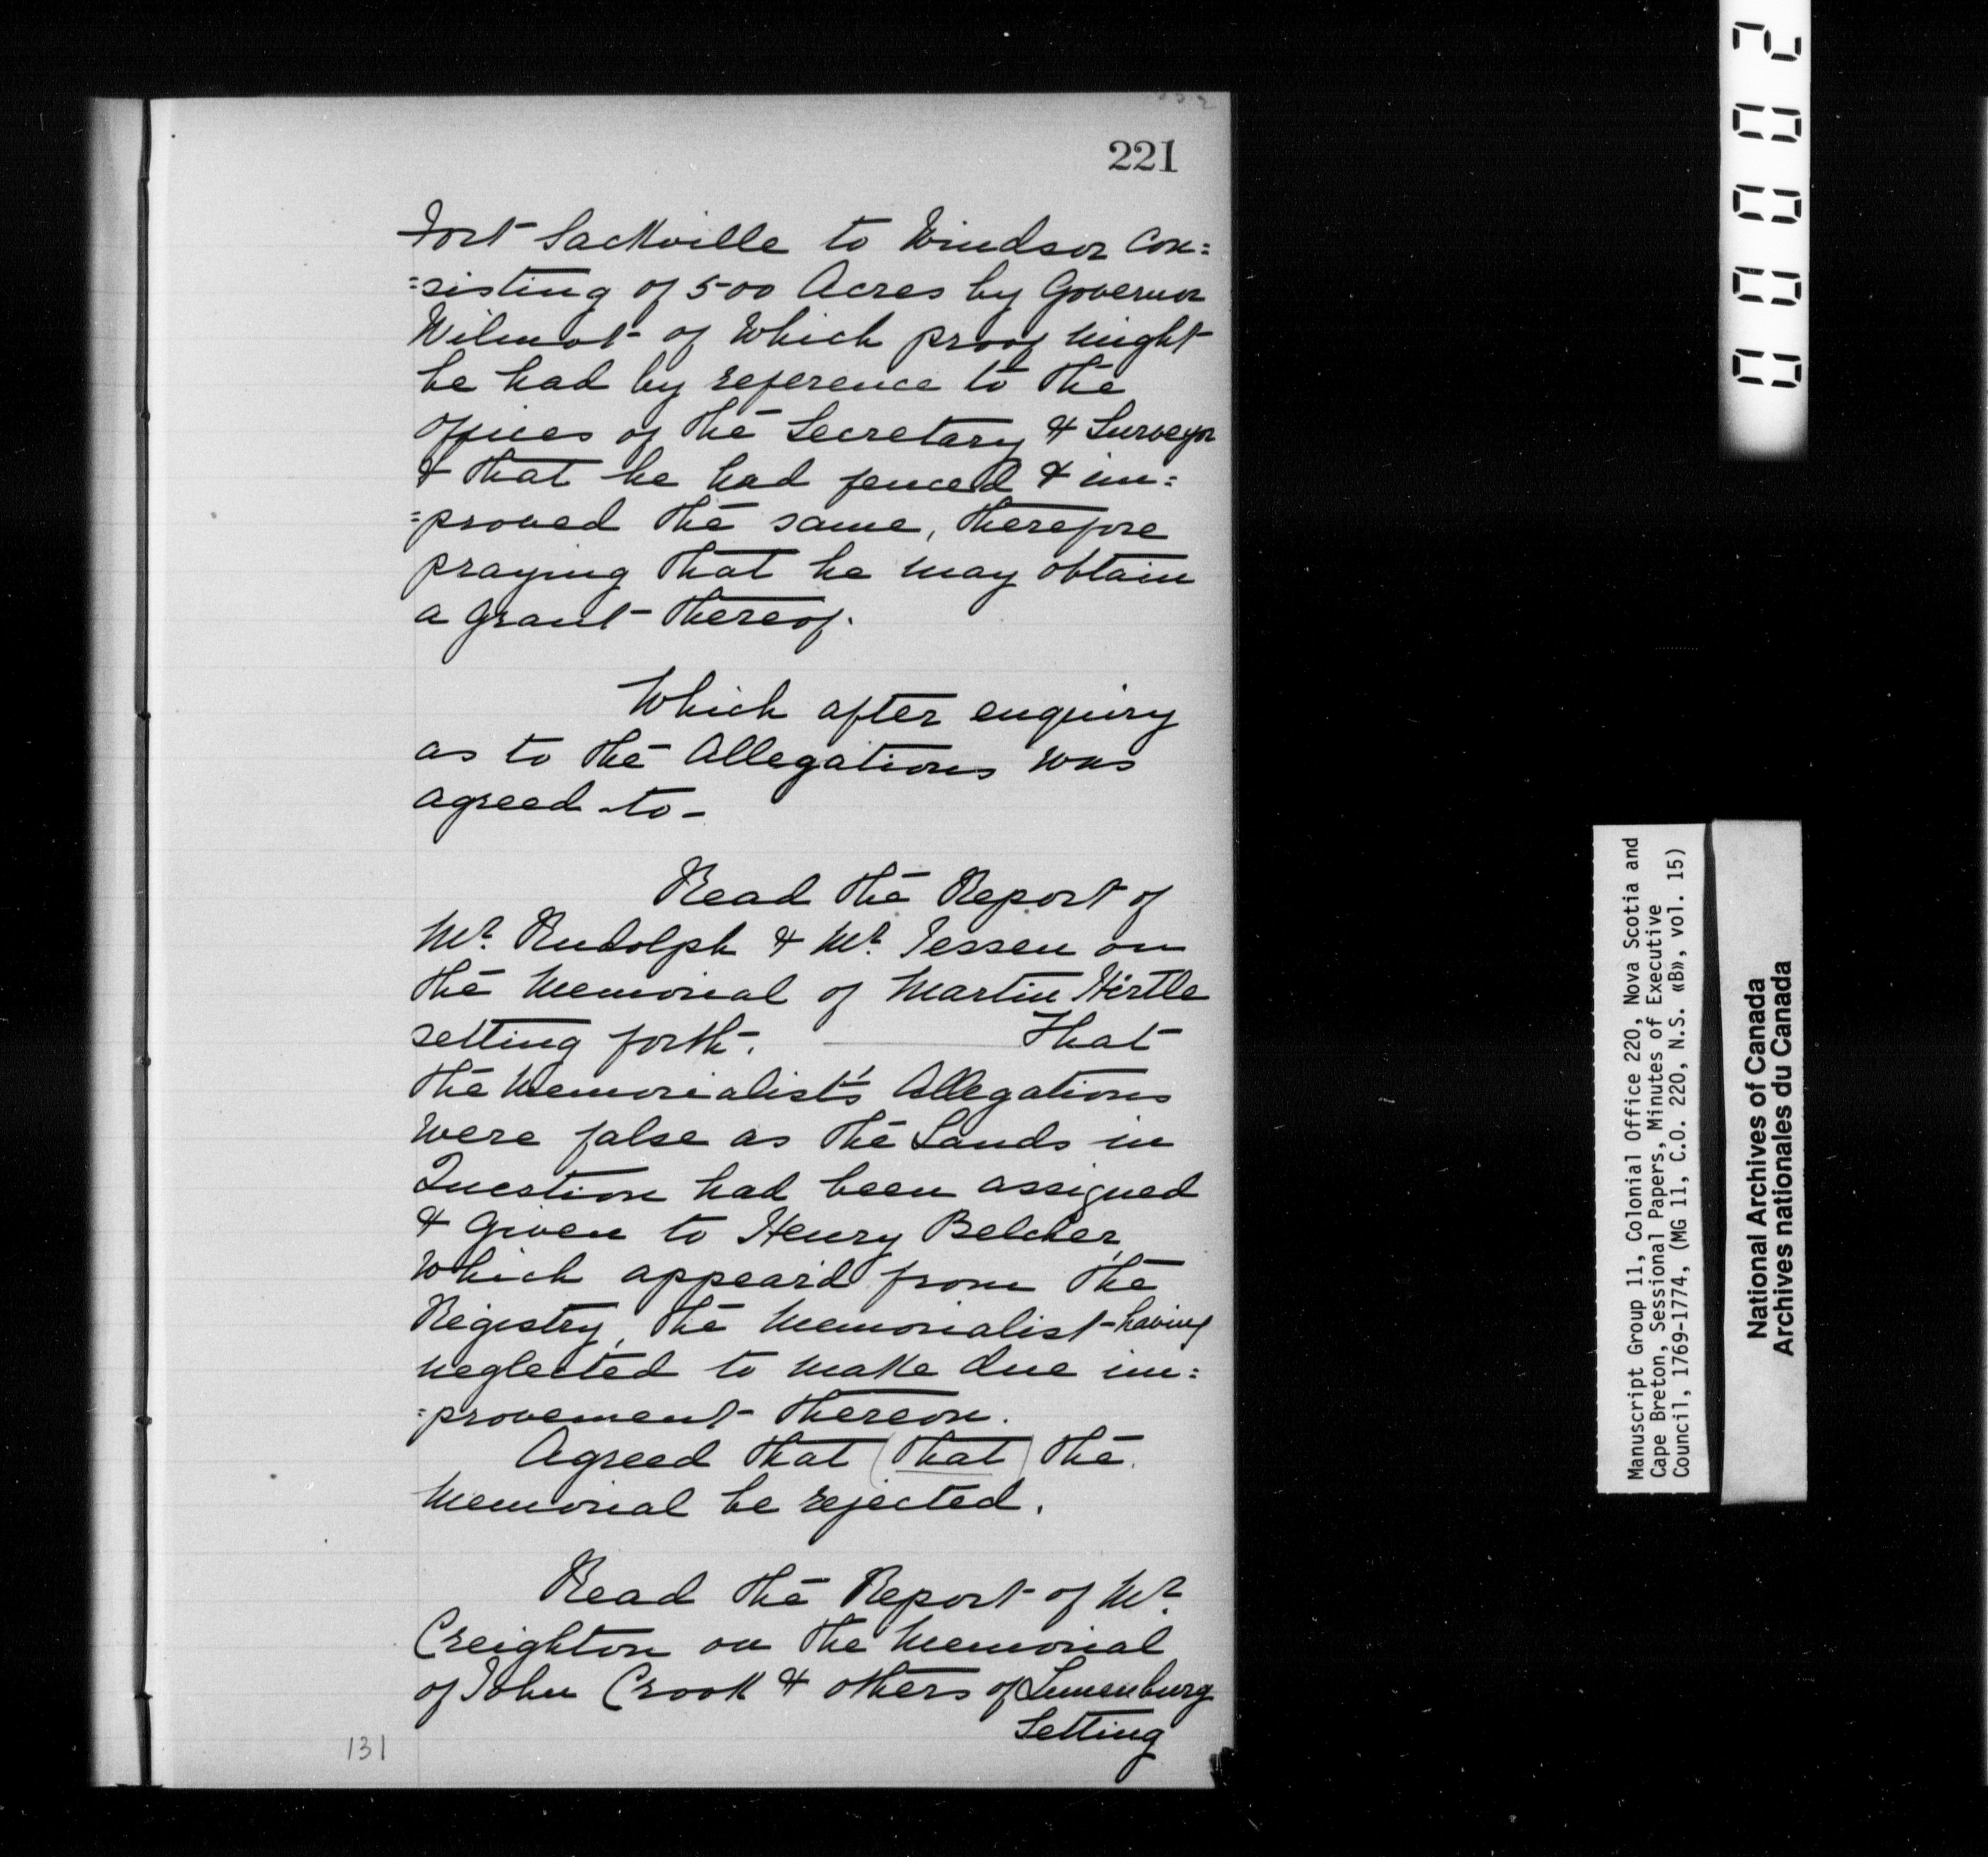 221
Fort Sackville to Windsor Con=
=sisting of 500 Acres by Governor
Wilmot of Which proof might
be had by reference to the
offices of the Secretary & Surveyor
& that he had fenced & im=
=proved the same, therefore
praying that he may obtain
a grant thereof.
Which after enquiry
as to the Allegations was
agreed to -
Read the Report of
Mr. Rudolph & Mr. Jessen on
the Memorial of Martin Hirtle
setting forth. That
the Memorialist's Allegations
were false as the Lands in
Question had been assigned
& given to Henry Belcher,
Which appear'd from the
Registry, the Memorialist having
neglected to make due im=
=provement thereon.
Agreed that (that) the
Memorial be rejected.
Read the Report of Mr.
Creighton on the Memorial
of John Crook & others of Lunenburg
Setting
131
00002
Manuscript Group 11, Colonial Office 220, Nova Scotia and
Cape Breton, Sessional Papers, Minutes of Executive
Council, 1769-1774, (MG 11, C.O. 220, N.S. «B», vol. 15)
National Archives of Canada
Archives nationales du Canada